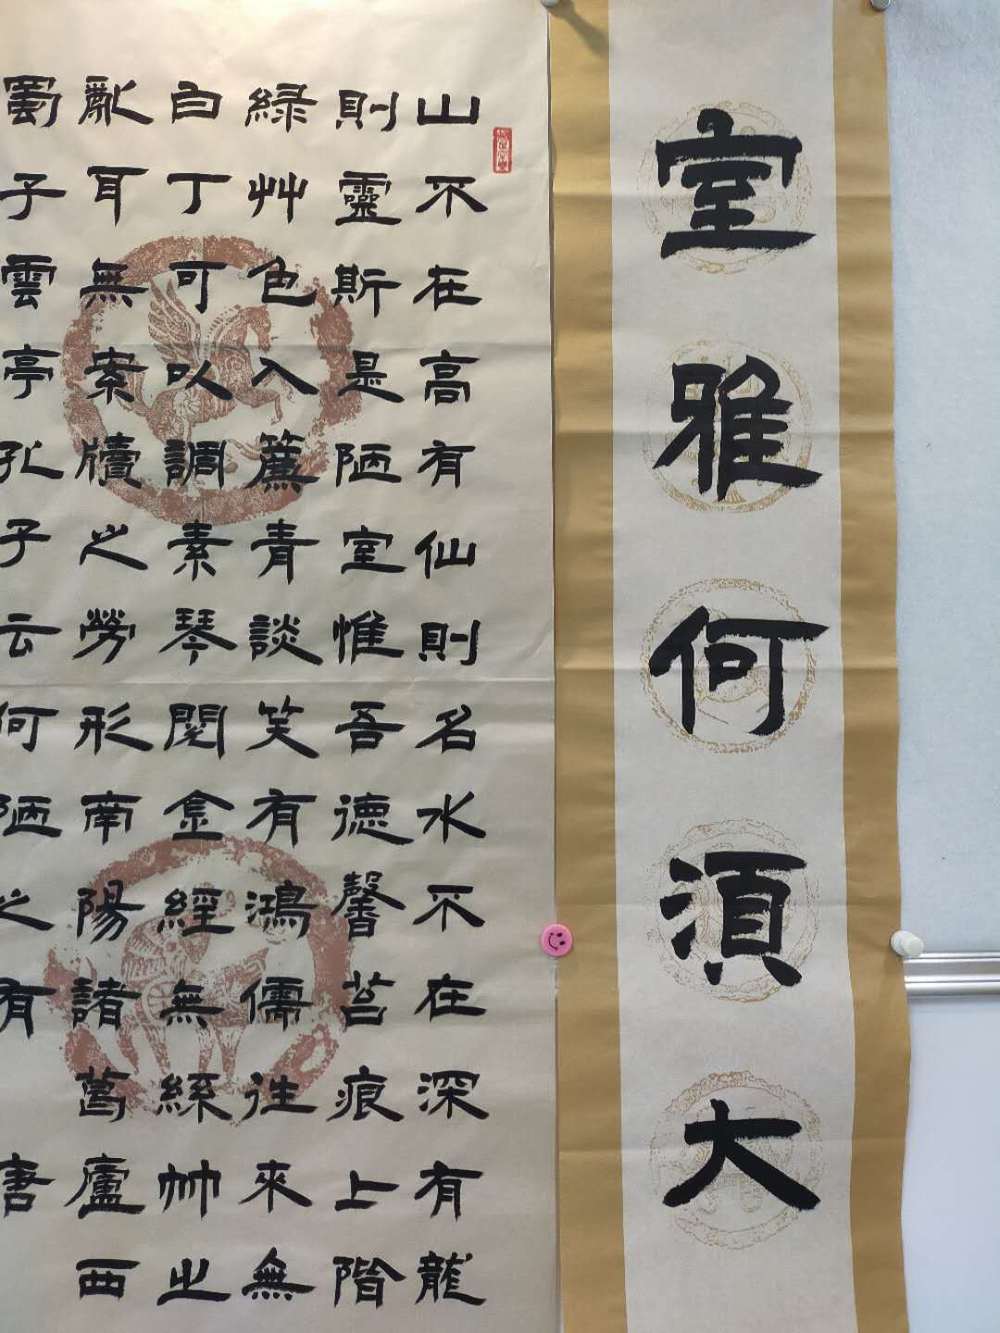 室雅何須大
山不在高有仙則名水不在深有龍
則靈斯是陋室惟吾德馨苔痕上階
綠艸色入簾青談笑有鴻儒往來無
白丁可以調素琴閱金經無絲竹之
亂耳無案牘之勞形南陽諸葛廬西
蜀子雲亭孔子云何陋之有 唐